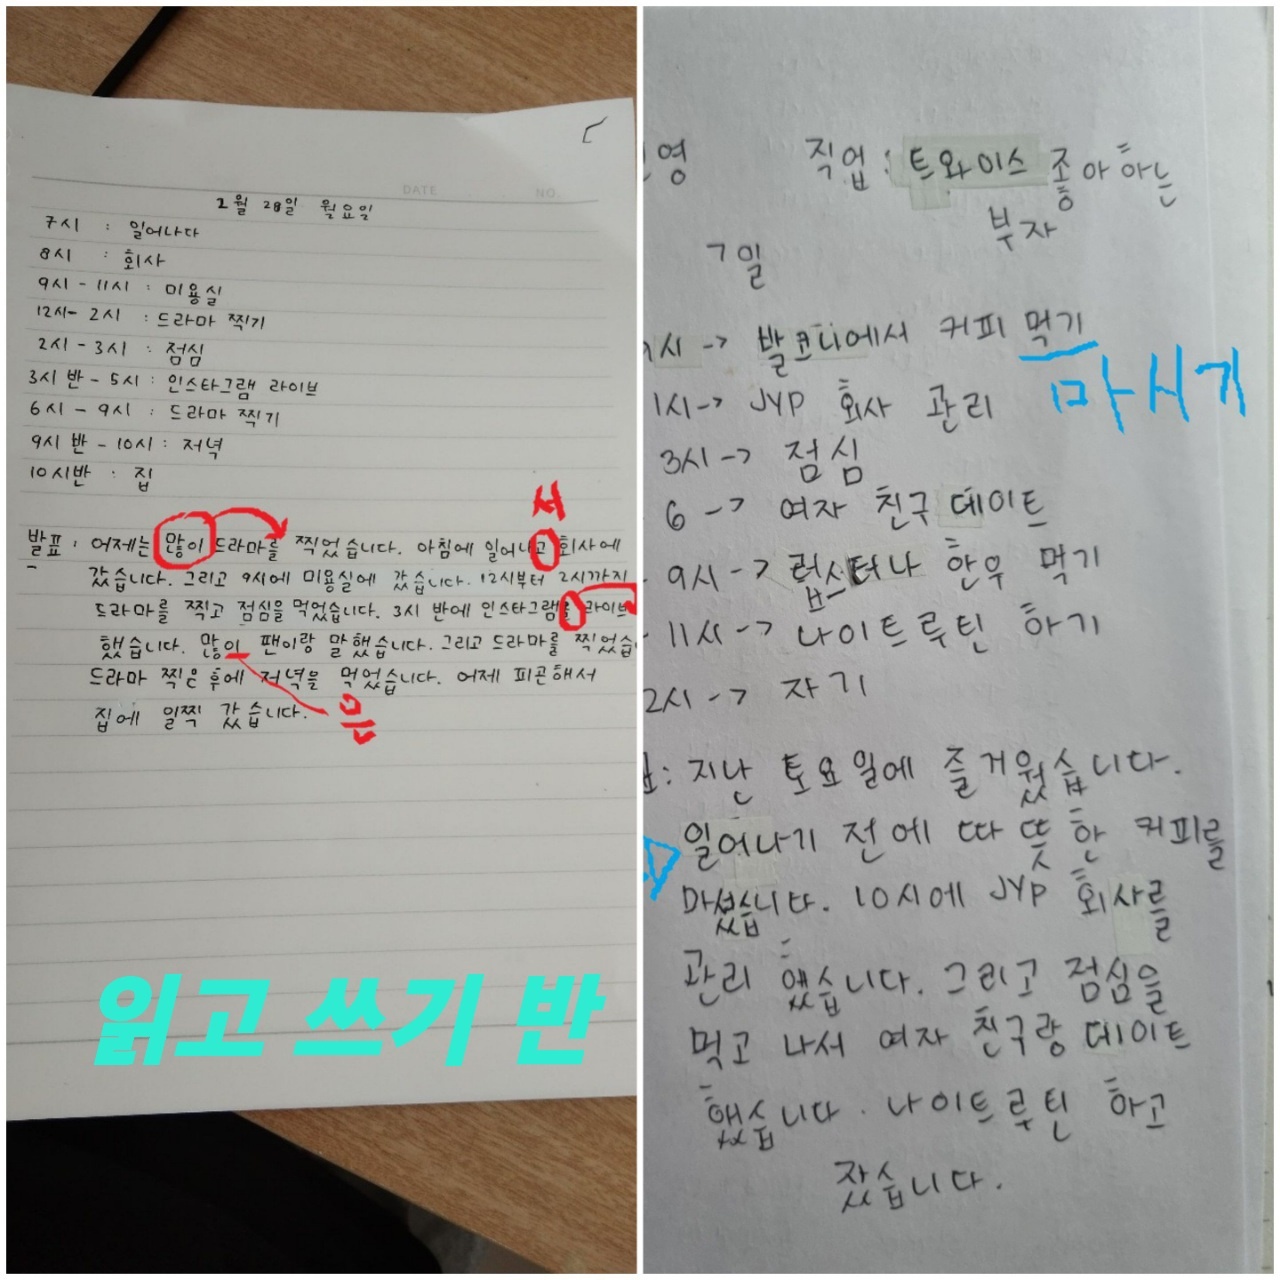 DATE NO.
2월 28일 월요일
7시 : 일어나다
8시 : 회사
9시 - 11시 : 미용실
12시 - 2시 : 드라마 찍기
2시 - 3시 : 점심
3시 반 - 5시 : 인스타그램 라이브
6시 - 9시 : 드라마 찍기
9시 반 - 10시 : 저녁
10시반 : 집
서
발표 : 어제는 많이 드라마를 찍었습니다. 아침에 일어나고 회사에
갔습니다. 그리고 9시에 미용실에 갔습니다. 12시부터 2시까지
드라마를 찍고 점심을 먹었습니다. 3시 반에 인스타그램를 라이브
했습니다. 많이 팬이랑 말했습니다. 그리고 드라마를 찍었습
드라마 찍은 후에 저녁을 먹었습니다. 어제 피곤해서
은
집에 일찍 갔습니다.
읽고 쓰기 반
영 직업 : 트와이스 좋아하는
부자
7일
시 -> 발코니에서 커피 먹기
마시기
1시 -> JYP 회사 관리
3시 -> 점심
6 -> 여자 친구 데이트
9시 -> 랍스터나 한우 먹기
11시 -> 나이트루틴 하기
2시 -> 자기
: 지난 토요일에 즐거웠습니다.
일어나기 전에 따뜻한 커피를
마셨습니다. 10시에 JYP 회사를
관리 했습니다. 그리고 점심을
먹고 나서 여자 친구랑 데이트
했습니다. 나이트루틴 하고
잤습니다.